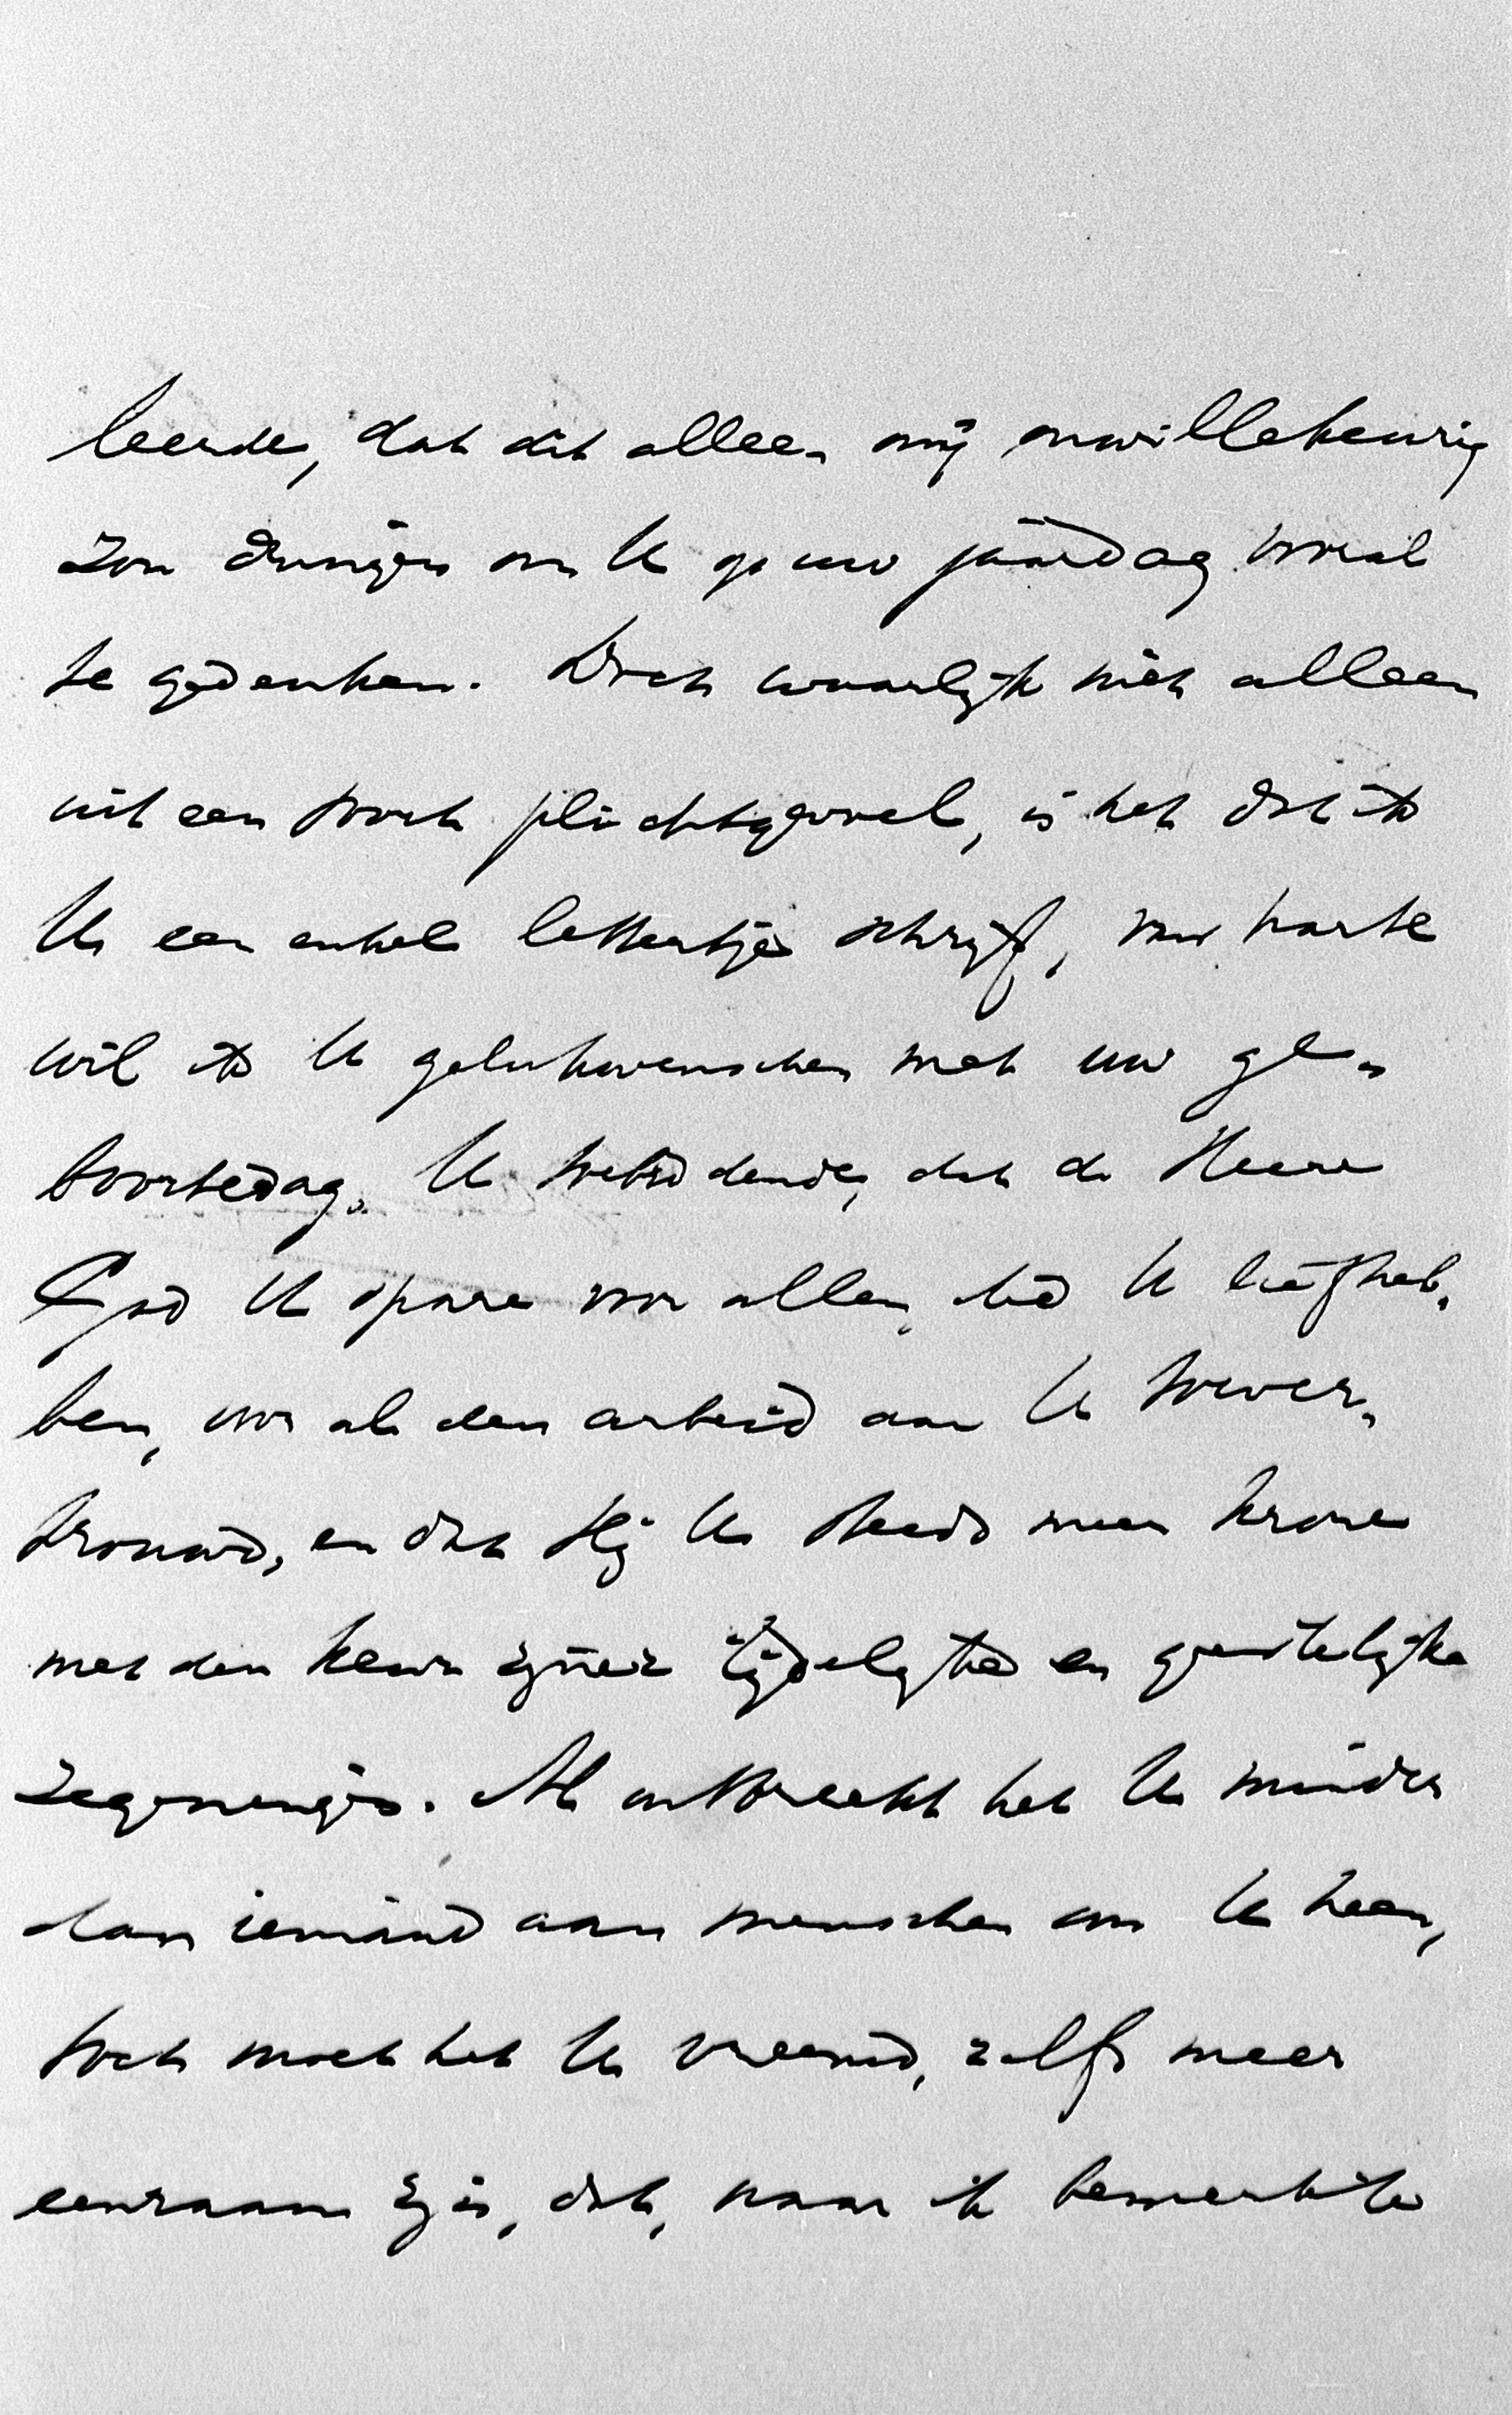 leerde, dat dit alleen mij onwillekeurig
zou dringen om U op uw jaardag vooral
te gedenken. Doch waarlijk niet alleen
uit een soort plichtsgevoel, is het dat ik
U een enkel lettertje schrijf, van harte
wil ik U gelukwenschen met uw ge-
boortedag. U toebiddende, dat de Heere
God U spare voor allen die U liefheb-
ben, voor al den arbeid aan U toever-
trouwd, en dat Hij U steeds meer krone
met den keur zijner tijdelijke en geestelijke
zegeningen. Al ontbreekt het U minder
dan iemand aan menschen om U heen,
toch moet het U vreemd, zelfs meer
eenzaam zijn, dat, naar ik bemerkte